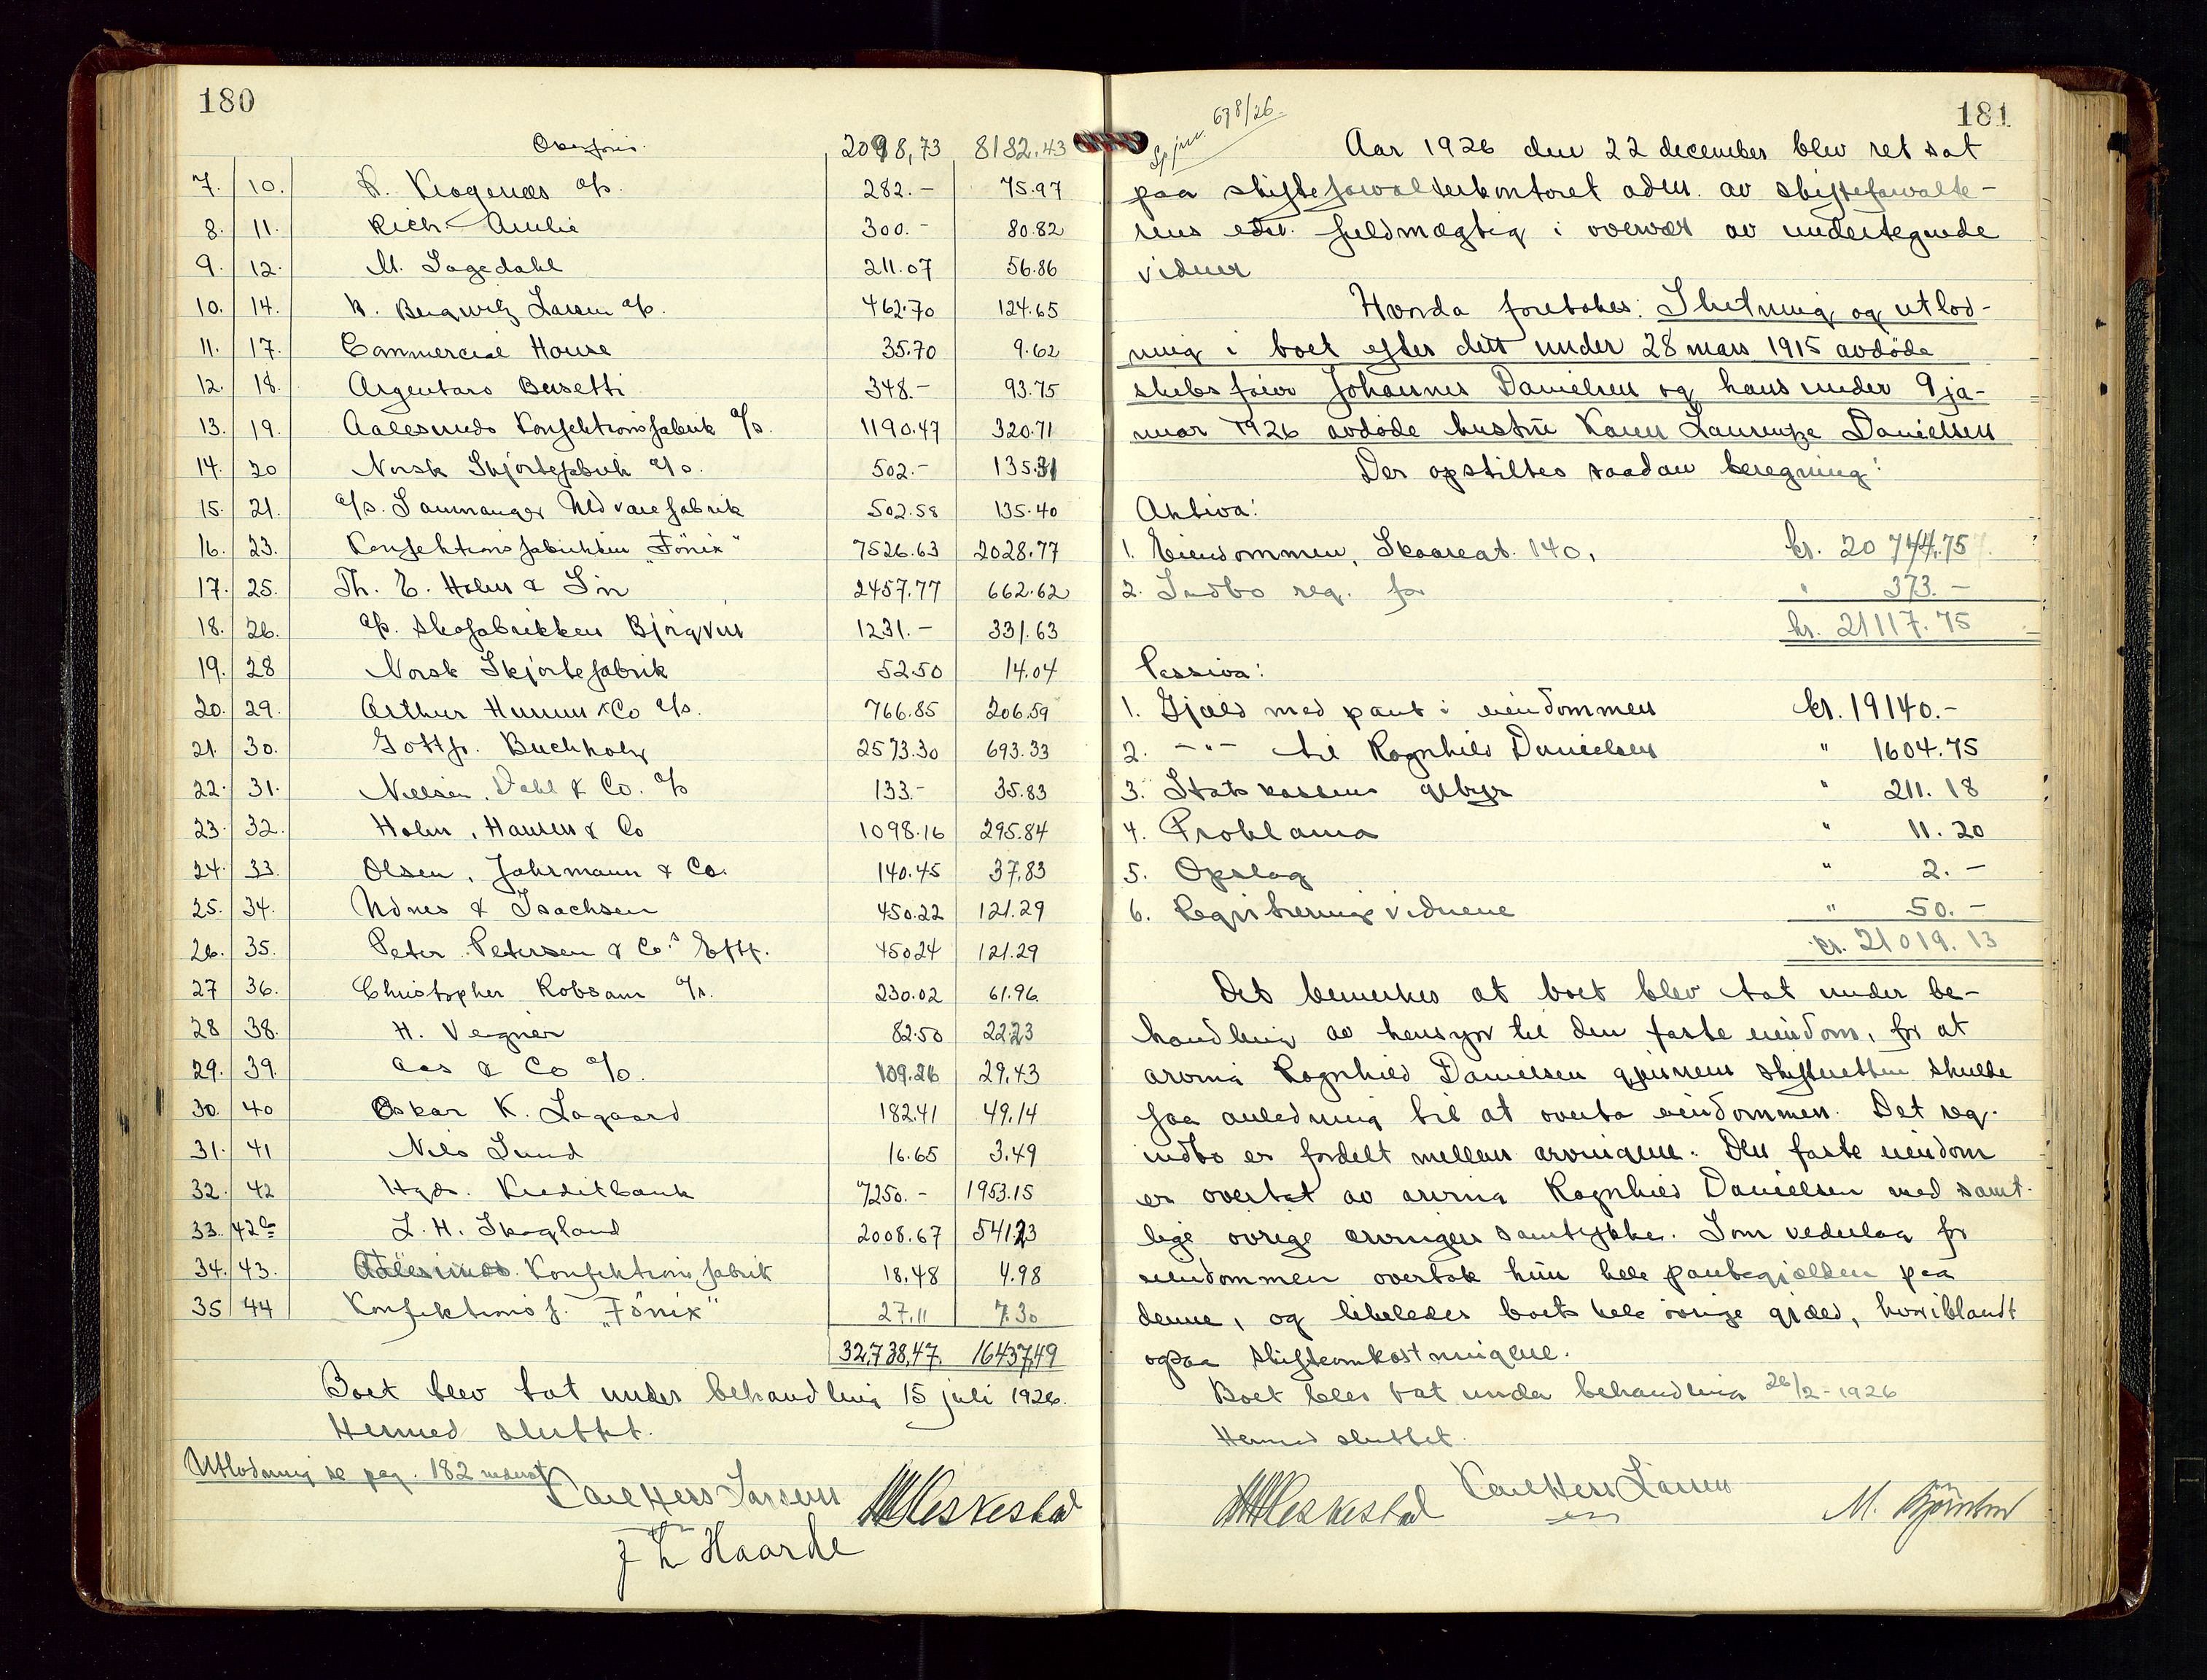 180
Overføris. 2098,73 8182.43
7. 10. K. Krogenæs a/s. 282.- 75.97
8. 11. Rich. Amlie 300.- 80.82
9. 12. M. Sagedahl 211.07 56.86
10. 14. Larsen a/s. 462.70 124.65
11. 17. Commercial House 35.70 9.62
12. 18. Argentaro Busetti 348.- 93.75
13. 19. Aalesunds Konfektionsfabrik a/s. 1190.47 320.71
14. 20 Norsk Skjortefabrik a/s. 502.- 135.31
15. 21. a/s. Samnanger Uldvarefabrik 502.58 135.40
16. 23. Konfektionsfabrikken "Fönix" 7526.63 2028.77
17. 25. Th. E. Holm & Sön 2457.77 662.62
18. 26. a/s. Skofabrikken Björgvin 1231.- 331.63
19. 28 Norsk Skjortefabrik 52.50 14.04
20. 29. Arthur Hummn & Co a/s. 766.85 206.59
21. 30. Gottfr. Buchholz 2573.30 693.33
22. 31. Nielsen, Dahl & Co. a/s 133.- 35.83
23. 32. Holm, Hansen & Co 1098.16 295.84
24. 33. Olsen, Jahrmann & Co. 140.45 37.83
25. 34. Udnes & Isachsen 450.22 121.29
26. 35. Peter Petersen & Co.s Eftf. 450.24 121.29
27 36. Christopher Robsam a/s. 230.02 61.96
28 38. H. Vegner 82.50 22.23
29. 39. Aas & Co a/s. 109.26 29.43
30. 40 Oskar K. Lagaard 182.41 49.14
31. 41 Nils Lund 16.65 3.49
32. 42 Hgds. Kreditbank 7250.- 1953.15
33. 42a L. H. Skogland 2008.67 541.23
34. 43. Aalesunds Konfektionsfabrik 18.48 4.98
35 44 Konfektionsf. "Fönix" 27.11 7.30
32,738,47. 16437,49
Boet blev tat under behandling 15 juli 1926.
Hermed sluttet.
Utlodning se pag. 182 nederst
Carl Hess Larsen M Keskestad
Haarde
181
678/26
Aar 1926 den 22 december blev ret sat
paa skifteforvalterkontoret adm. av skifteforvalte-
rens edsv. fuldmægtig i overvær av undertegnede
vidner
Hvorda foretokes: Slutning og utlod-
ning i boet efter dett under 28 mars 1915 avdöde
skibsförer Johannes Danielsen og hans under 9 ja-
nuar 1926 avdöde hustru Karen Laurentze Danielsen
Der opstiltes saadan beregning:
Aktiva:
1. Eiendommen, Skaaregt. 140, kr. 20 744.75
2. Indbo reg. for " 373.-
kr. 21117.75
Passiva:
1. Gjæld med pant i eiendommen kr. 19140.-
2. -"- til Ragnhild Danielsen " 1604.75
3. Statskassens gebyr " 211.18
4. Proklama " 11.20
5. Opslag " 2.-
6. Registreringsvidnene " 50.-
kr. 21019.13
Det bemerkes at boet blev tat under be-
handling av hensyn til den faste eiendom, for at
arving Ragnhild Danielsen gjennem skifteretten skulde
faa anledning til at overta eiendommen. Det reg.
indbo er fordelt mellem arvingene. Den faste eiendom
er overtat av arving Ragnhild Danielsen med samt-
lige övrige arvinger samtykke. Som vederlag for
eiendommen overtok hun hele pantegjælden paa
denne, og likeledes boets hele övrige gjæld, hvoriblandt
ogsaa skifteomkostningene.
Boet blev tat under behandling 26/2-1926
Hermed sluttet.
M Keskestad Carl Hess Larsen M.